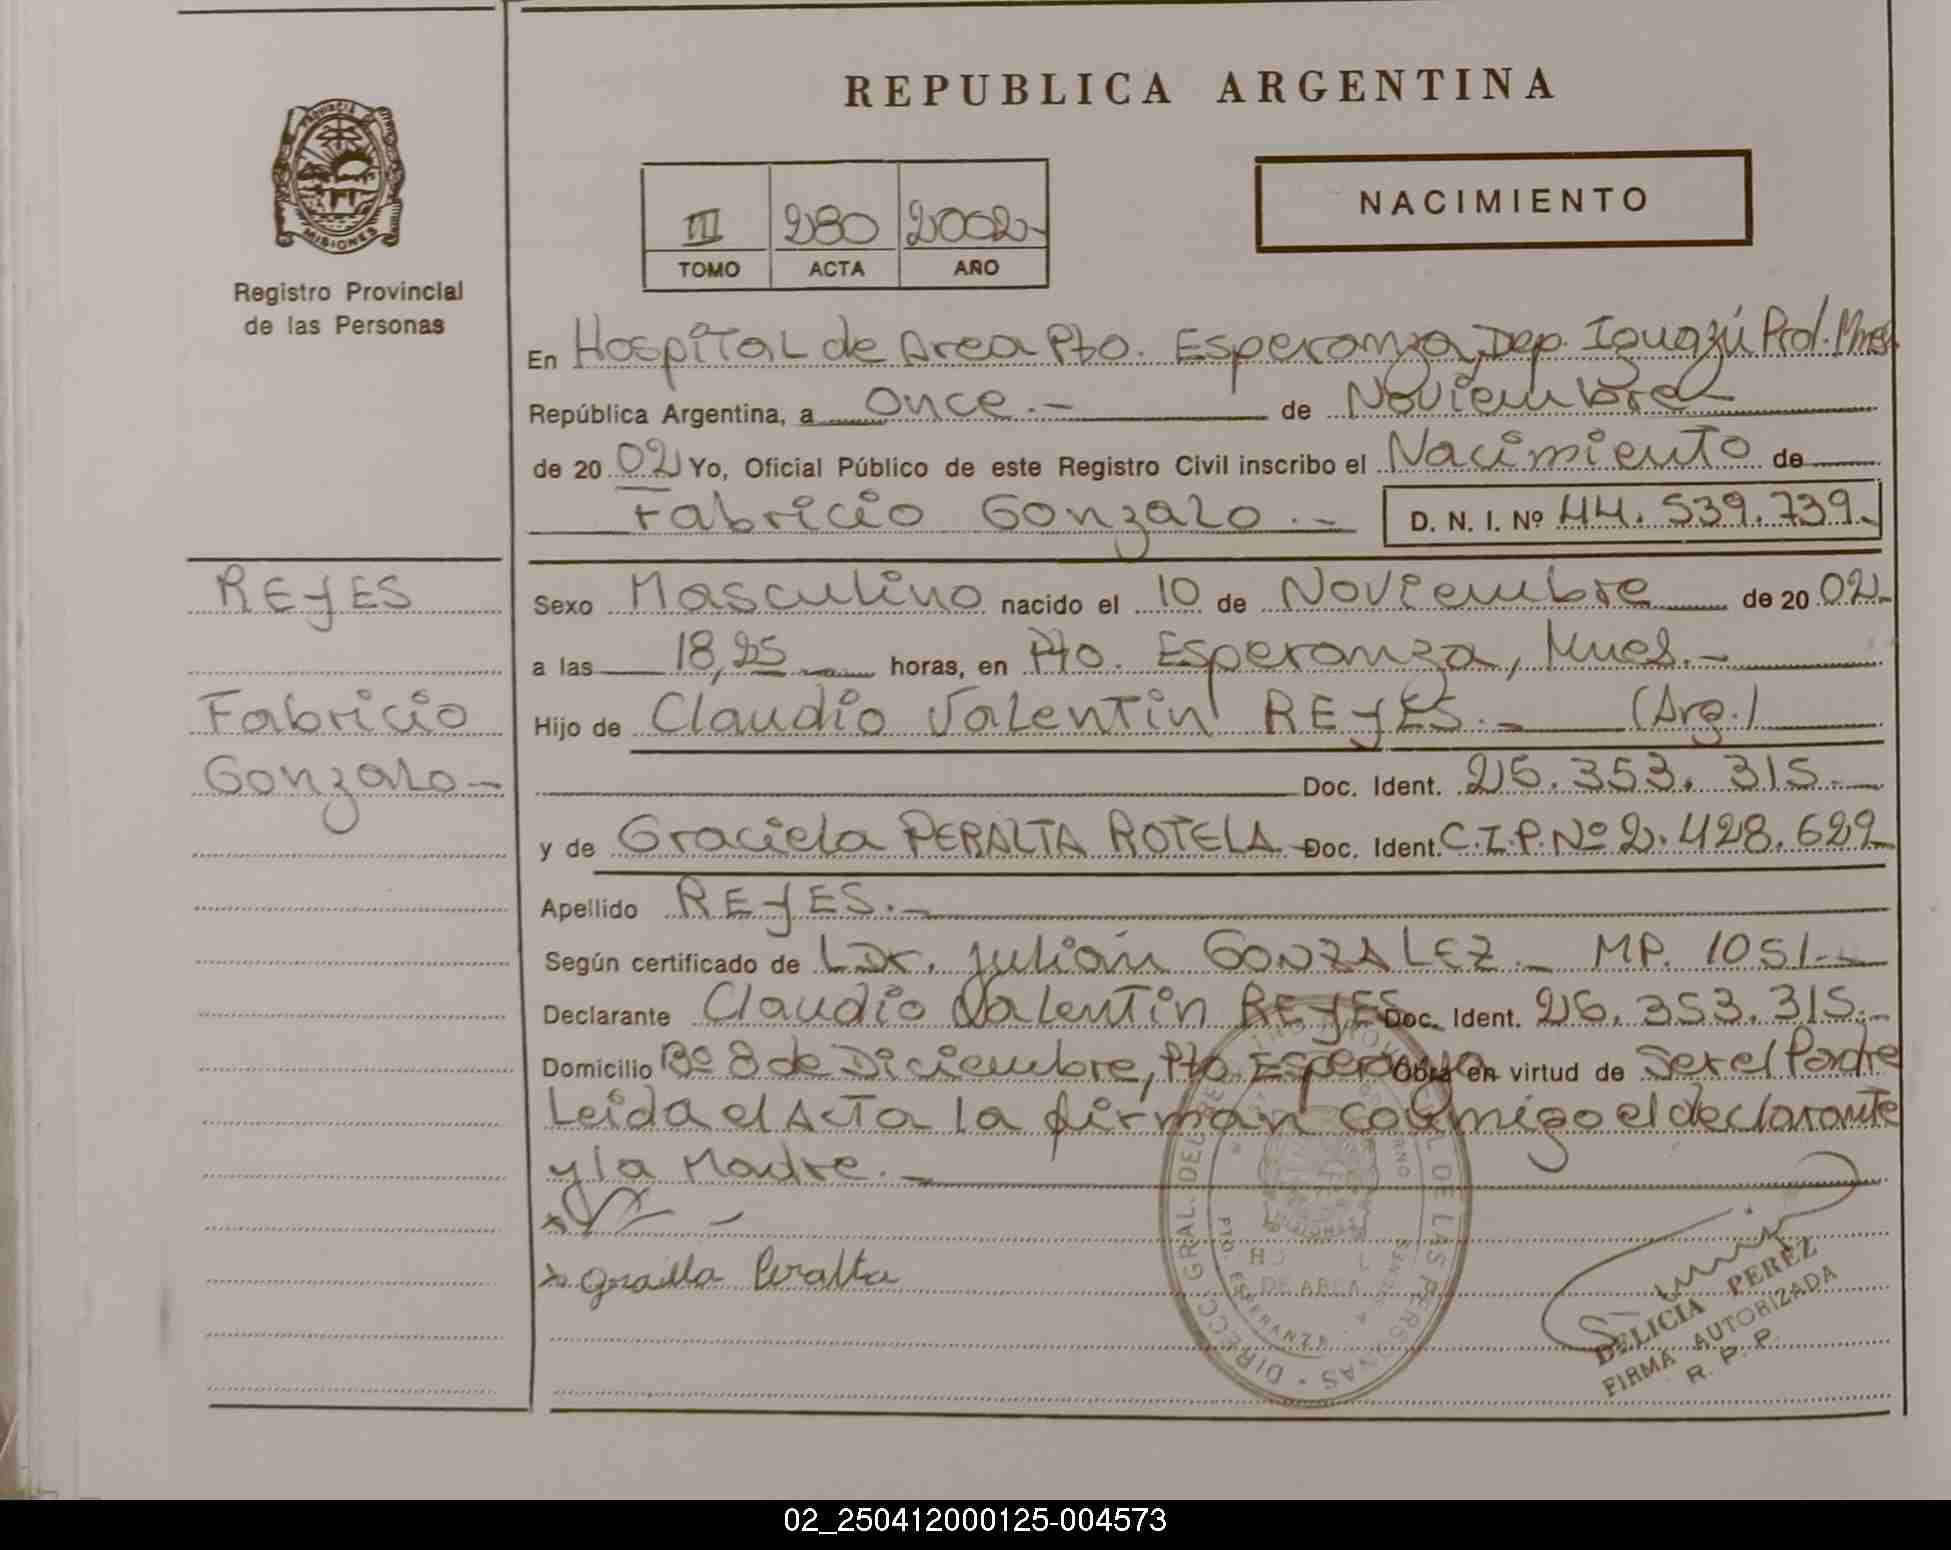 REPUBLICA ARGENTINA
PROVINCIA
MISIONES
Registro Provincial
de las Personas
III 280 2002.-
TOMO ACTA AÑO
NACIMIENTO
En Hospital de Area Pto. Esperanza, Dep. Iguazú Prov. Mnes.
República Argentina, a once.- de Noviembre
de 20 02 Yo, Oficial Público de este Registro Civil inscribo el Nacimiento de
Fabricio Gonzalo.- D. N. I. Nº 44.539.739.-
REYES
Fabricio
Gonzalo-
Sexo Masculino nacido el 10 de Noviembre de 20 02-
a las 18,25 horas, en Pto. Esperanza, Mnes.-
Hijo de Claudio Valentin REYES.- (Arg.)
Doc. Ident. 26.353.315.-
y de Graciela PERALTA ROTELA- Doc. Ident. C.I.P.Nº 2.428.629-
Apellido REYES.-
Según certificado de Dr. Julián GONZALEZ.- MP. 1051.-
Declarante Claudio Valentin REYES Doc. Ident. 26.353.315.-
Domicilio Bº 8 de Diciembre, Pto Esperanza Obra en virtud de Ser el Padre
Leida el Acta la firman conmigo el declarante
y la Madre.-
Graciela Peralta
DIRECC. GRAL. DEL DE LAS PERSONAS
PTO. ESPERANZA
DE AREA
DELICIA PEREZ
FIRMA AUTORIZADA
R. P. P.
02_250412000125-004573